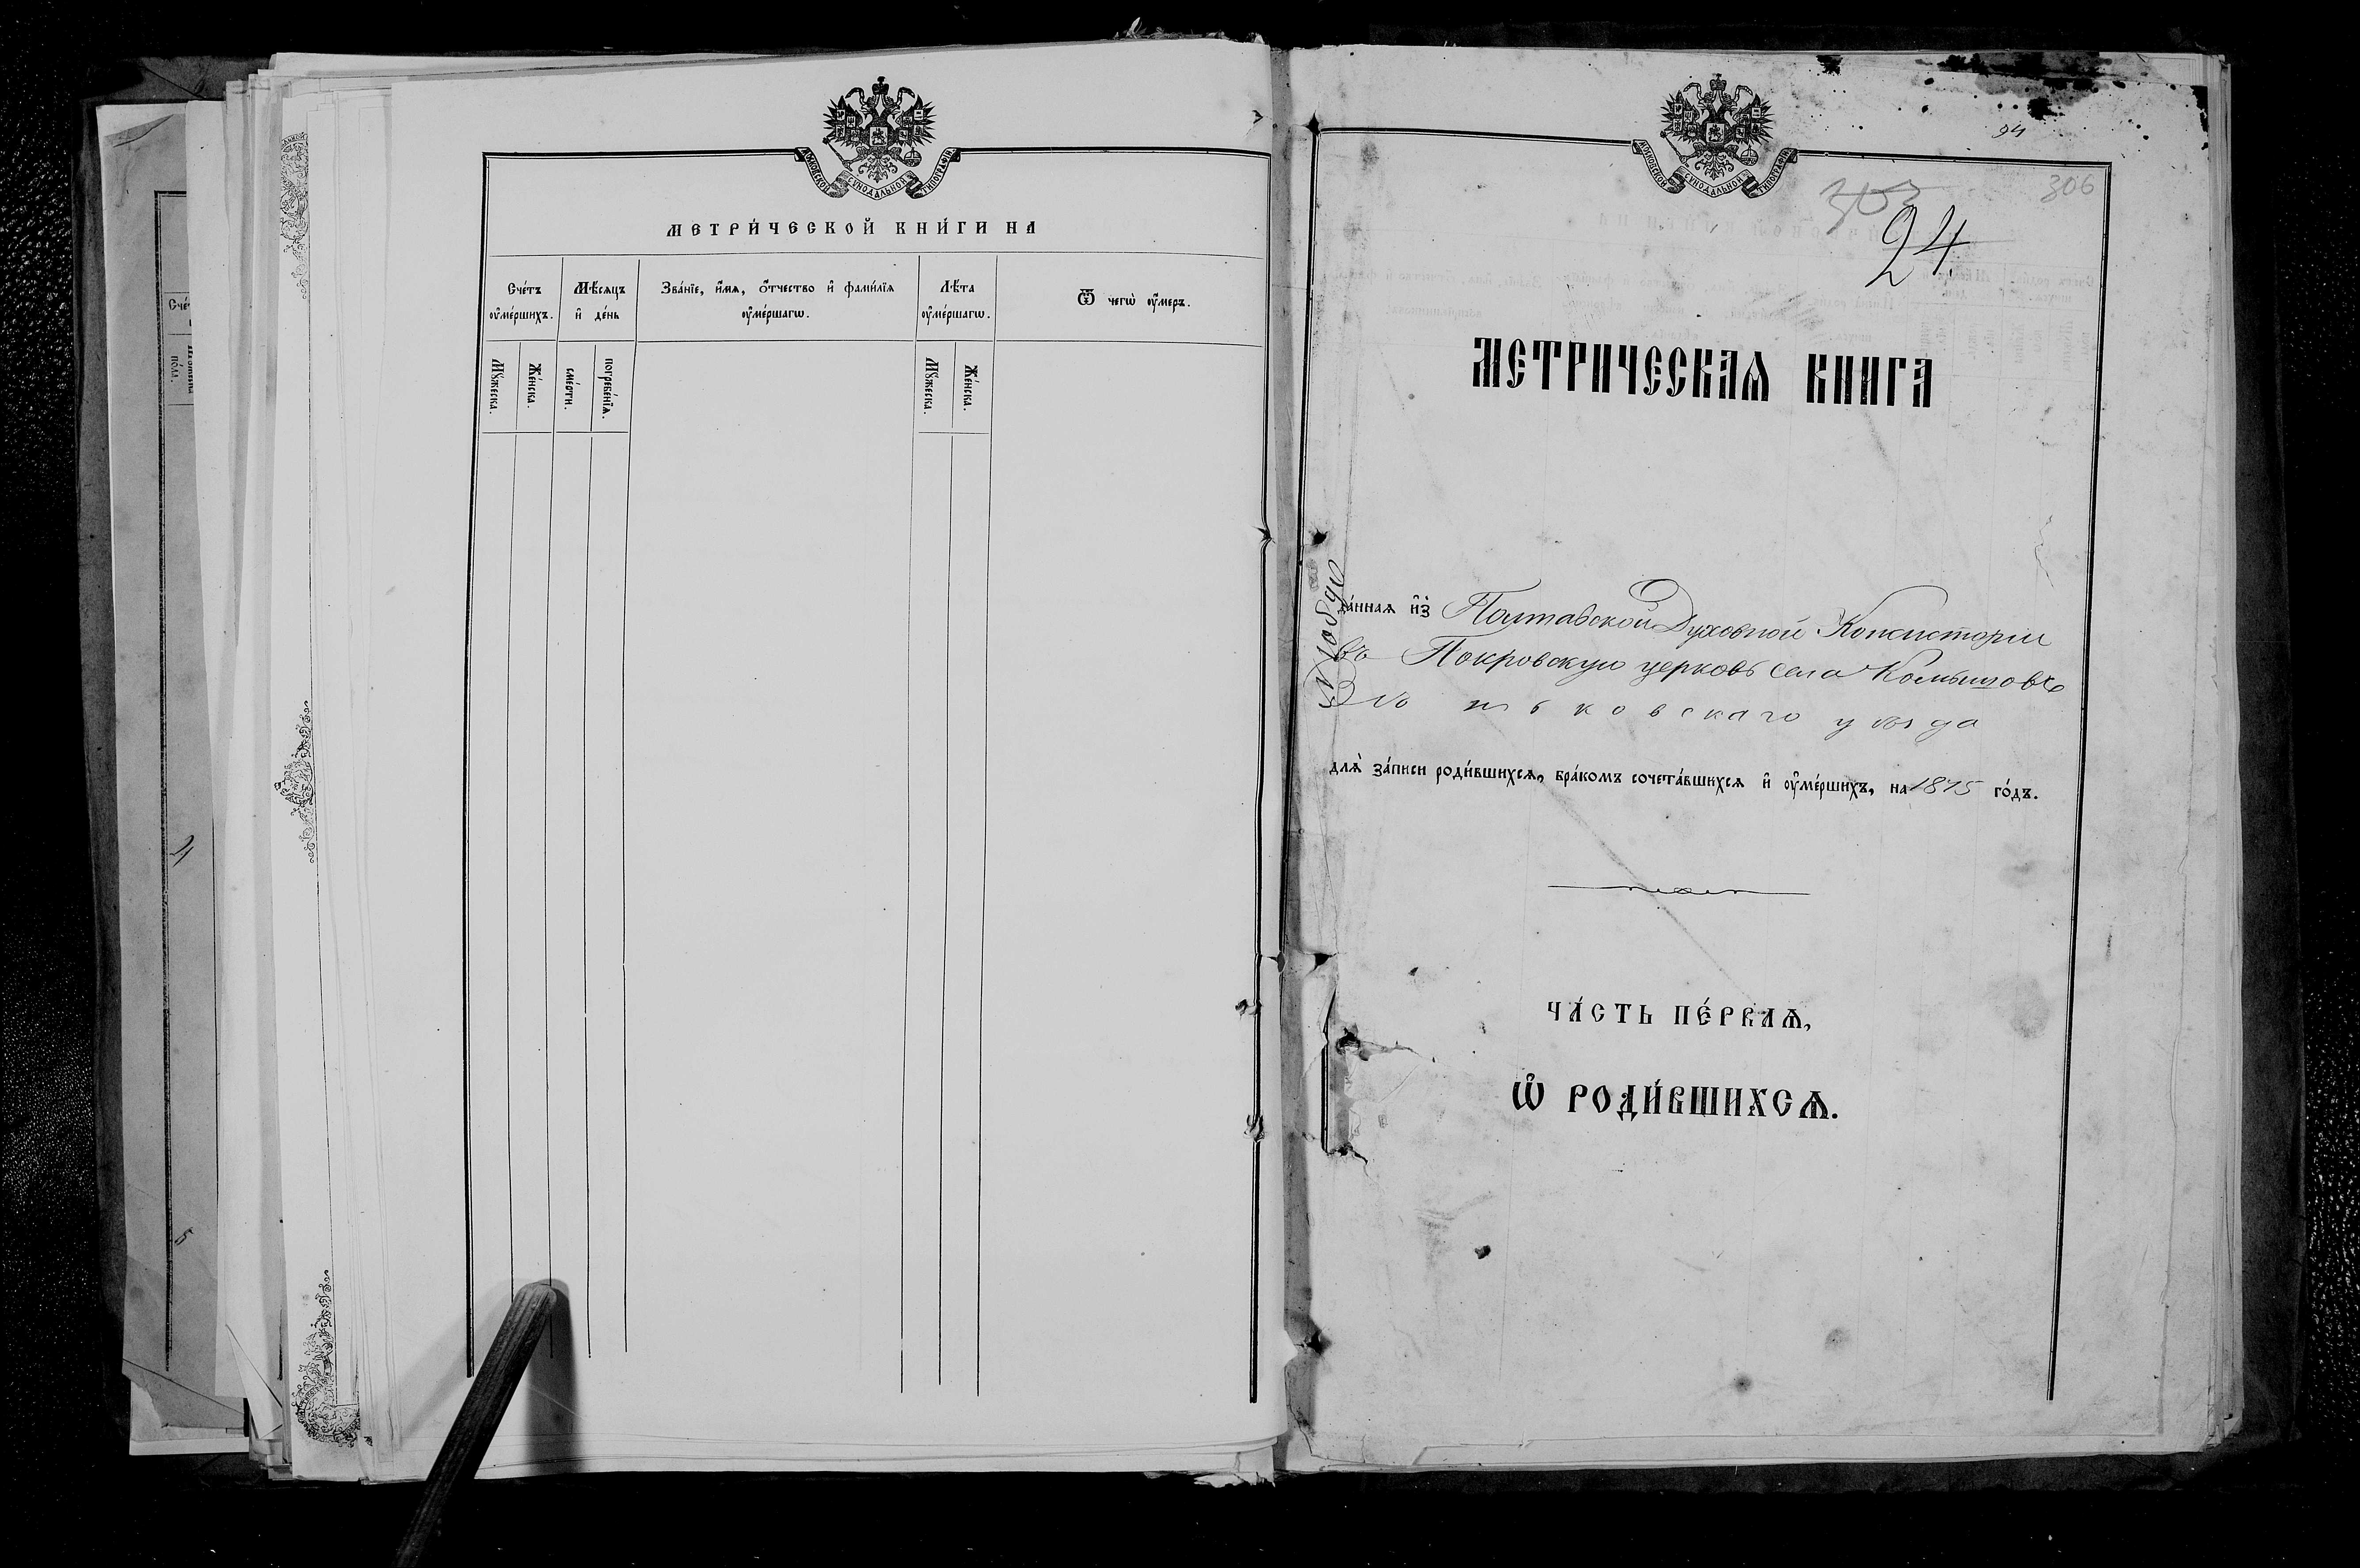 МОСКОВСКОЙ СѴНОДАЛЬНОЙ ТИПОГРАФІИ
МЕТРИ́ЧЕСКОЙ КНИ́ГИ НА
Сче́тъ ᲂу҆ме́ршихъ.
Мѣ́сяцъ и҆ де́нь
Зва́нїе, и҆́мѧ, ѻ҆́тчество и҆ фами́лїѧ ᲂу҆ме́ршагѡ.
Лѣ́та ᲂу҆ме́ршагѡ.
Ѿ чегѡ̀ ᲂу҆́меръ.
Мꙋ́жеска.
Же́нска.
сме́рти.
погребе́нїѧ.
Мꙋ́жеска.
Же́нска.
МОСКОВСКОЙ СѴНОДАЛЬНОЙ ТИПОГРАФІИ
94
306
303
24.
МЕТРИЧЕСКАѦ КНИГА
да́ннаѧ и҆з̾ Полтавской Духовной Консисторіи
въ Покровскую церковь села Комышовъ
Зѣньковскаго уѣзда
длѧ̀ за́писи роди́вшихсѧ, бра́комъ сочета́вшихсѧ и҆ ᲂу҆ме́ршихъ, на 1875 го́дъ.
ЧА́СТЬ ПЕ́РВАѦ,
Ѽ РОДИ́ВШИХСѦ.